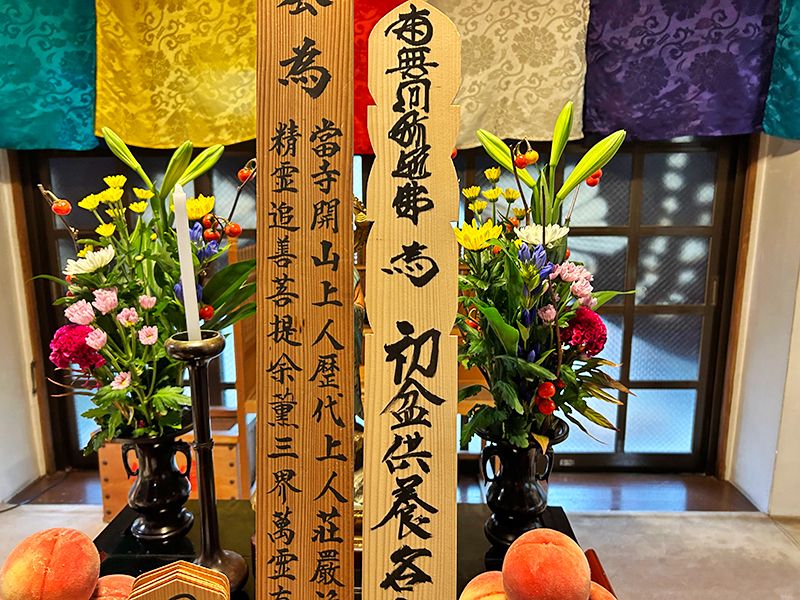 為
當寺開山上人歴代上人莊嚴
精霊追善菩提余薫三界萬霊
南無阿弥陀佛 為 初盆供養各